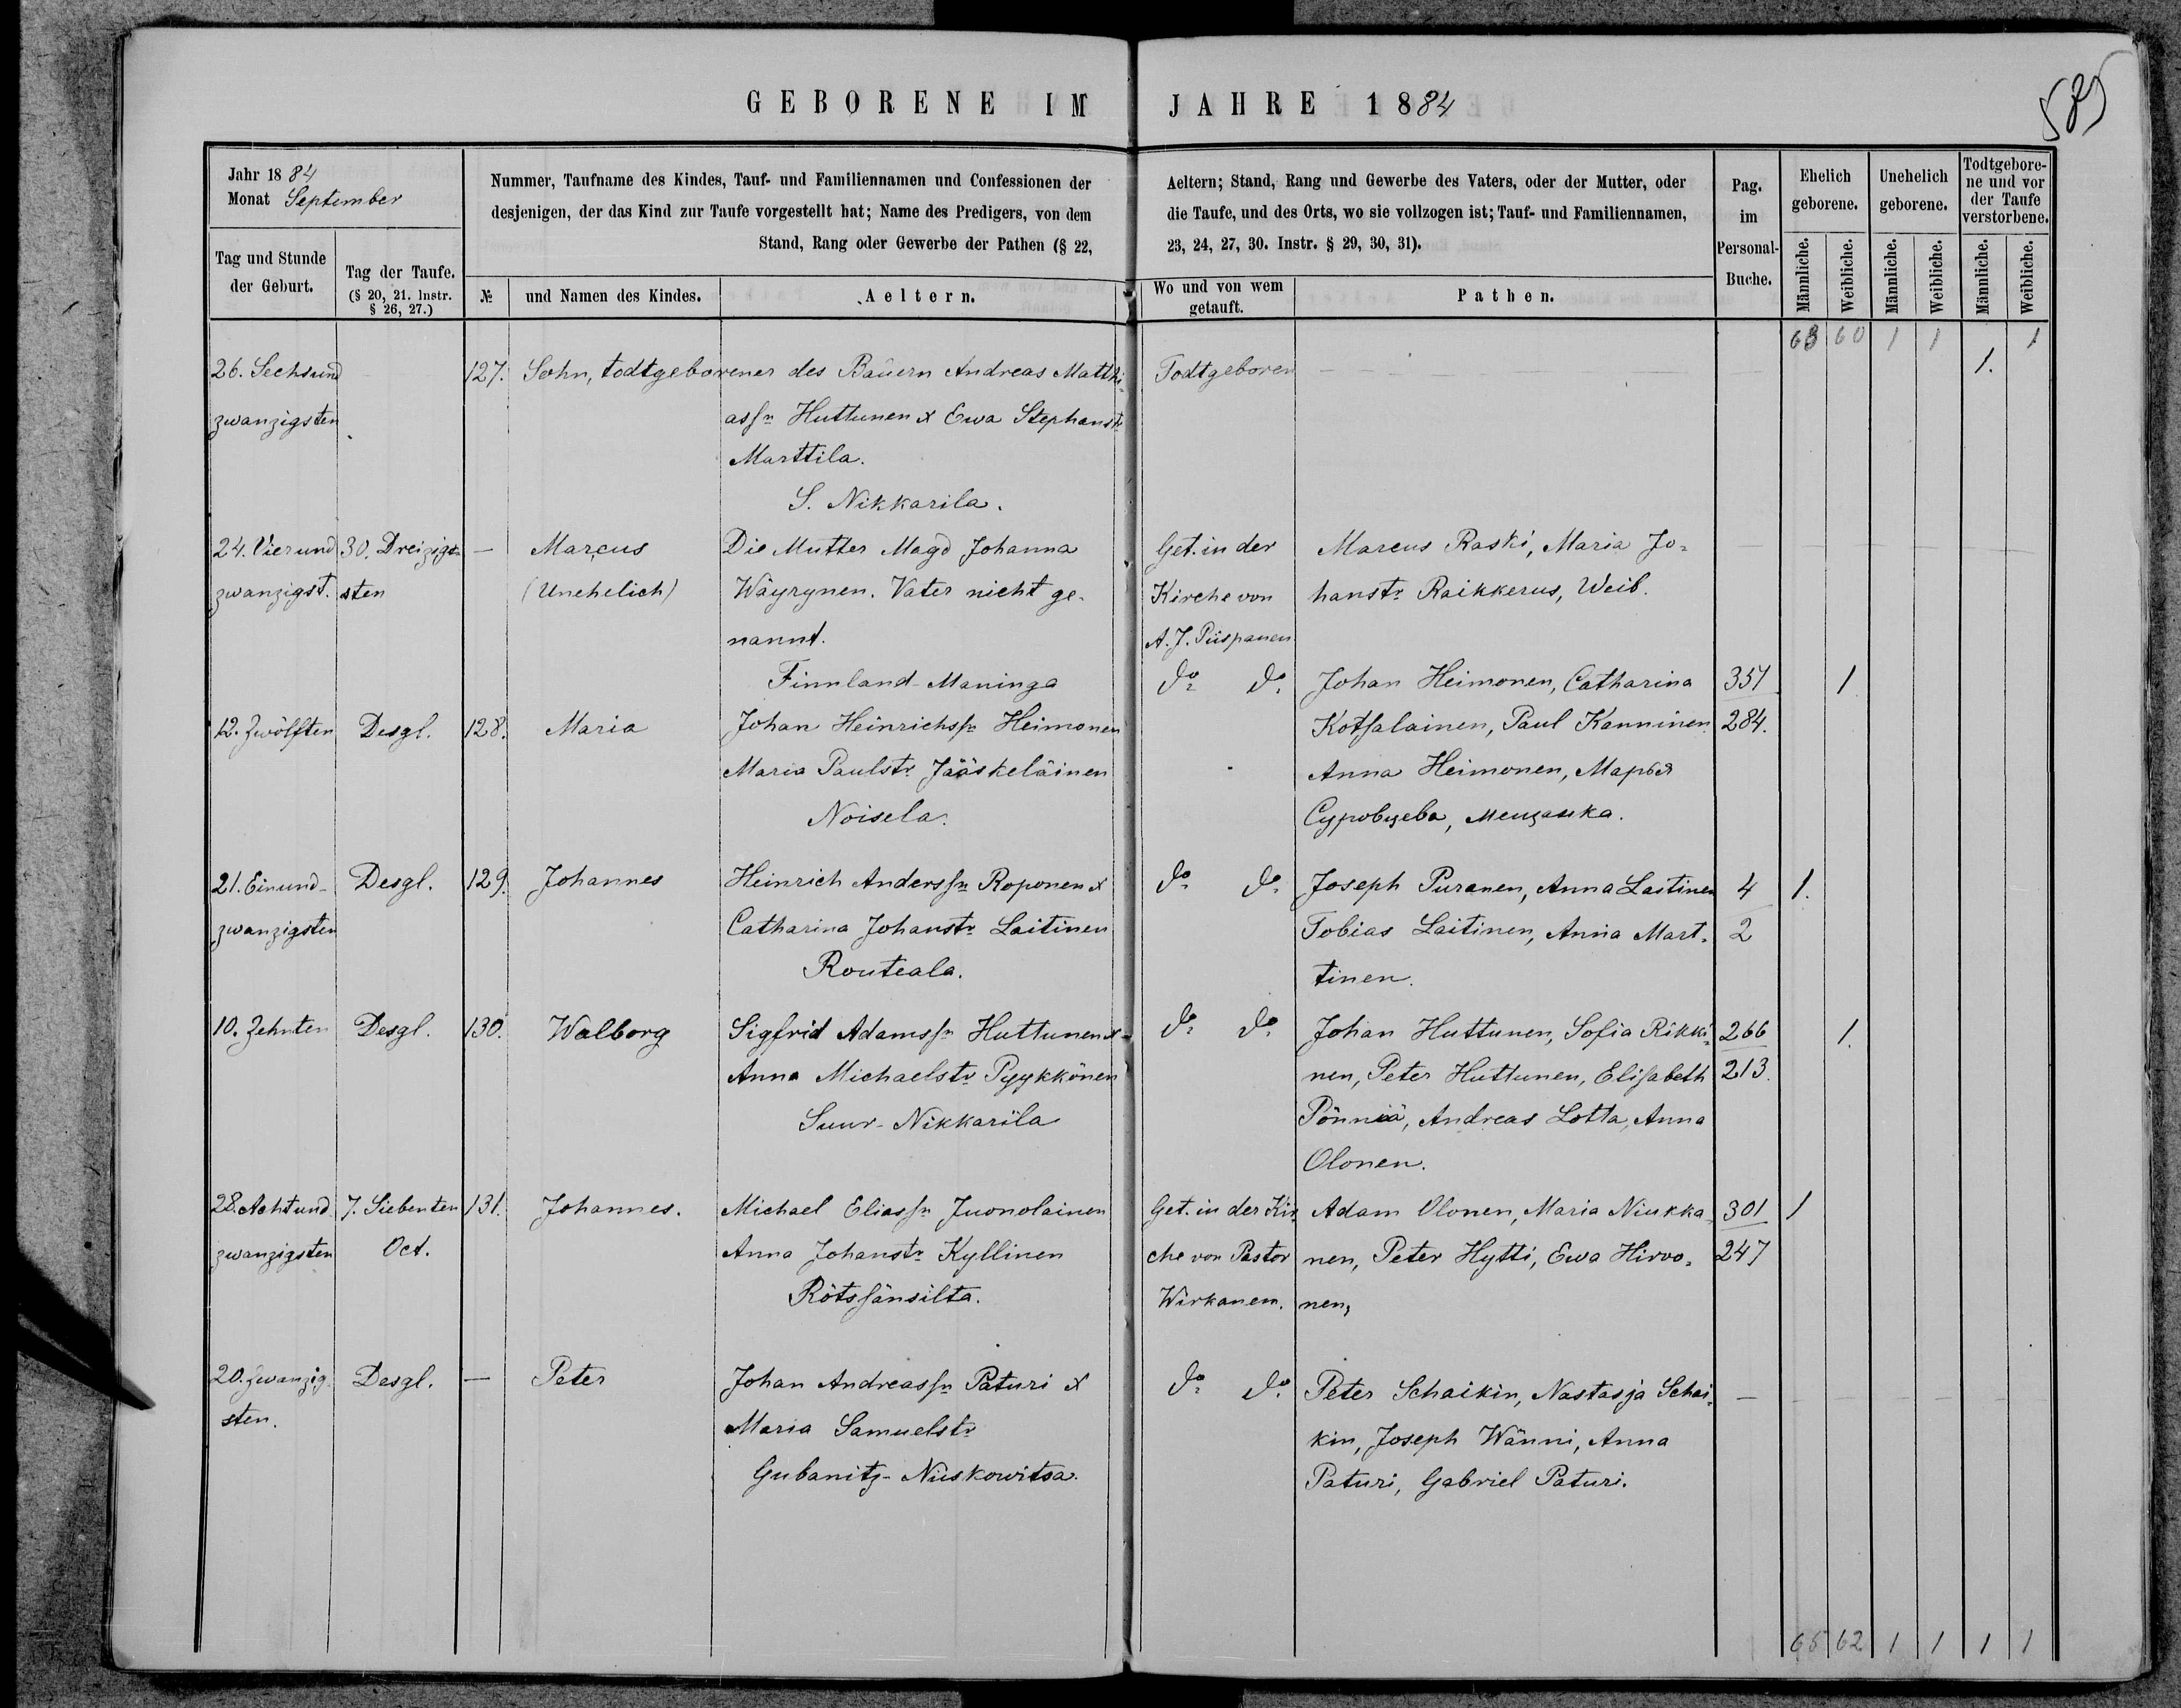 GEBORENE IM JAHRE 1884
585
Jahr 1884
Monat September
Nummer, Taufname des Kindes, Tauf- und Familiennamen und Confessionen der
desjenigen, der das Kind zur Taufe vorgestellt hat; Name des Predigers, von dem
Stand, Rang oder Gewerbe der Pathen (§ 22,
Aeltern; Stand, Rang und Gewerbe des Vaters, oder der Mutter, oder
die Taufe, und des Orts, wo sie vollzogen ist; Tauf- und Familiennamen,
23, 24, 27, 30. Instr. § 29, 30, 31).
Pag.
im
Personal-
Buche.
Ehelich
geborene.
Unehelich
geborene.
Todtgebore-
ne und vor
der Taufe
verstorbene.
Tag und Stunde
der Geburt.
Tag der Taufe.
(§ 20, 21. Instr.
§ 26, 27.)
№
und Namen des Kindes.
Aeltern.
Wo und von wem
getauft.
Pathen.
Männliche.
Weibliche.
Männliche.
Weibliche.
Männliche.
Weibliche.
63 60 1 1 1
26. Sechsund 127. Sohn, todtgeborener des Bauern Andreas Matthi= Todtgeboren 1.
zwanzigsten assn Huttunen & Ewa Stephanstr
Marttila.
S. Nikkarila.
24. Vierund 30. Dreizig= — Marcus Die Mutter Magd Johanna Get. in der Marcus Raski, Maria Jo=
zwanzigst. sten (Unehelich) Wäyrynen. Vater nicht ge- Kirche von hanstr Raikkerus, Weib.
nannt. A. J. Piispanen
Finnland Maninga do do Johan Heimonen, Catharina 351 1
12. Zwölften Desgl. 128. Maria Johan Heinrichssn Heimonen Kotsalainen, Paul Kanninen 284.
Maria Paulstr Jääskeläinen Anna Heimonen, Марья
Noisela. Суровцева, мещанка.
21. Einund- Desgl. 129. Johannes Heinrich Anderssn Roponen & do do Joseph Puranen, Anna Laitinen 4 1.
zwanzigsten Catharina Johanstr Laitinen Tobias Laitinen, Anna Mart= 2
Routeala. tinen.
10. Zehnten Desgl. 130. Walborg Sigfrid Adamssn Huttunen & do do Johan Huttunen, Sofia Rikki= 266 1.
Anna Michaelstr Pyykkönen nen, Peter Huttunen, Elisabeth 213.
Suur-Nikkarila Pönniä, Andreas Lotta, Anna
Olonen.
28. Achtund 7. Siebenten 131. Johannes. Michael Eliassn Juonolainen Get. in der Kir= Adam Olonen, Maria Niukka= 301 1
zwanzigsten Oct. Anna Johanstr Kyllinen che von Pastor nen, Peter Hytti, Ewa Hirvo= 247
Rötssänsilta. Wirkanen. nen,
20. Zwanzig= Desgl. — Peter Johan Andreassn Paturi & do do Peter Schaikin, Nastasja Schai= —
sten. Maria Samuelstr kin, Joseph Wänni, Anna
Gubanitz-Niiskowitsa. Paturi, Gabriel Paturi.
65 62 1 1 1 1